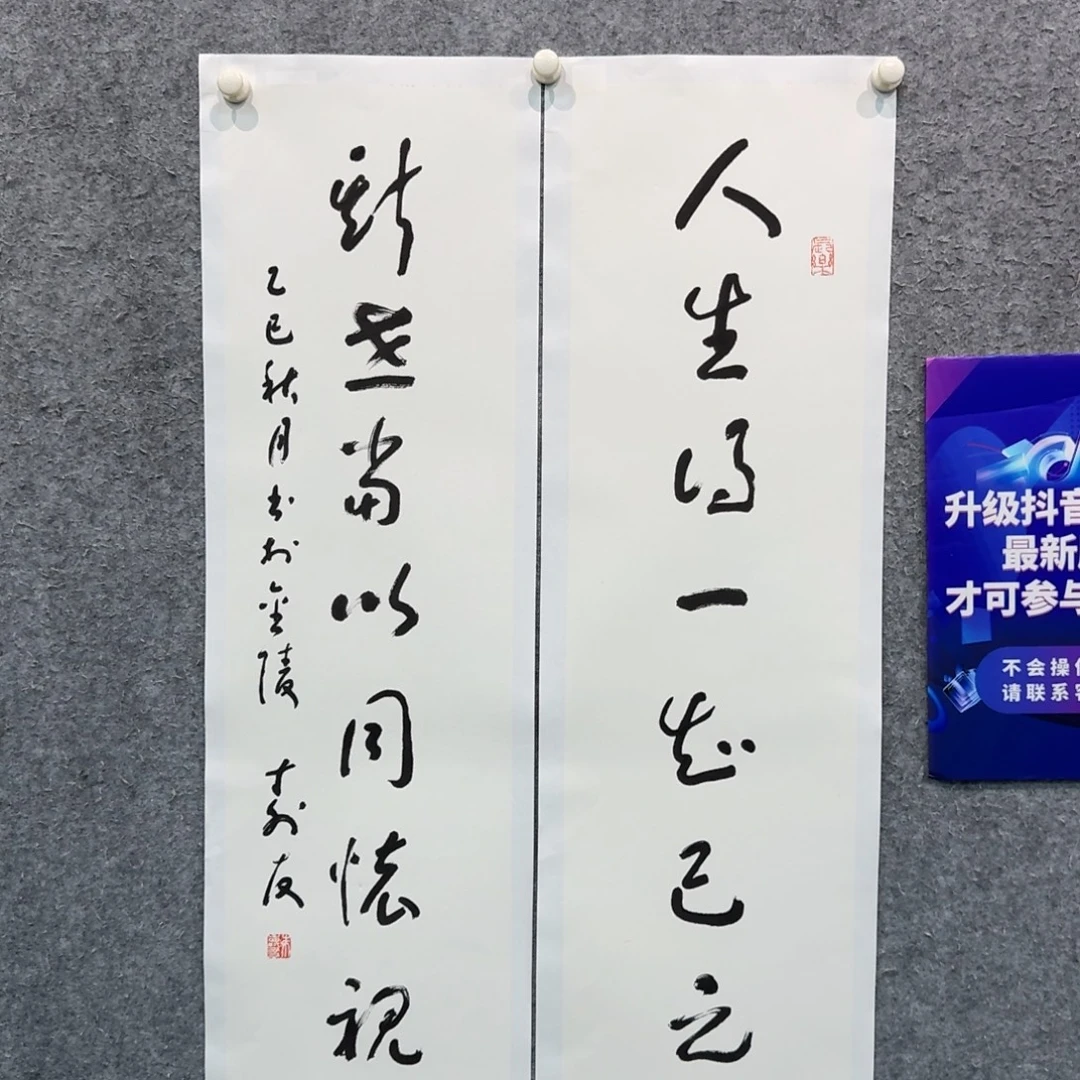 人生得一知己足
斯世當以同懷視
乙巳秋月书於金陵 壽友
升级抖音
最新
才可参与
不会操作
请联系客